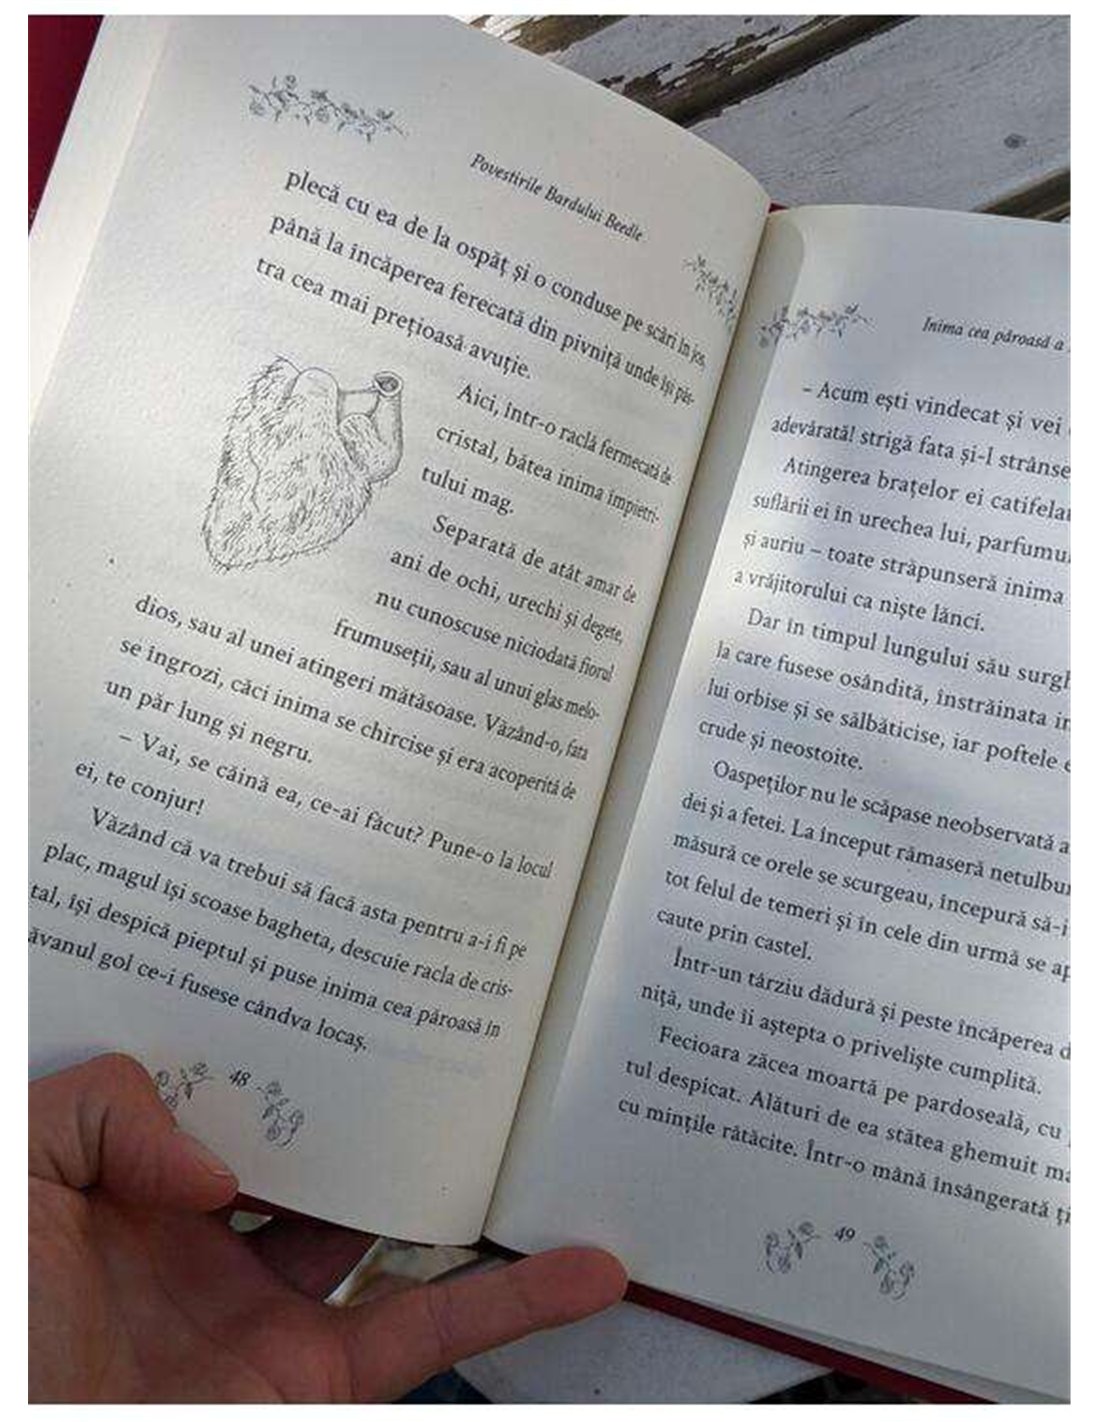 Povestirile Bardului Beedle
plecă cu ea de la ospăț și o conduse pe scări în jos,
până la încăperea ferecată din pivniță unde își păs-
tra cea mai prețioasă avuție.
Aici, într-o raclă fermecată de
cristal, bătea inima împietri-
tului mag.
Separată de atât amar de
ani de ochi, urechi și degete,
nu cunoscuse niciodată fiorul
frumuseții, sau al unui glas melo-
dios, sau al unei atingeri mătăsoase. Văzând-o, fata
se îngrozi, căci inima se chircise și era acoperită de
un păr lung și negru.
– Vai, se căină ea, ce-ai făcut? Pune-o la locul
ei, te conjur!
Văzând că va trebui să facă asta pentru a-i fi pe
plac, magul își scoase bagheta, descuie racla de cris-
tal, își despică pieptul și puse inima cea păroasă în
ăvanul gol ce-i fusese cândva locaș.
48
Inima cea păroasă a
– Acum ești vindecat și vei
adevărată! strigă fata și-l strânse
Atingerea brațelor ei catifelat
suflării ei în urechea lui, parfumu
și auriu – toate străpunseră inima
a vrăjitorului ca niște lănci.
Dar în timpul lungului său surgh
la care fusese osândită, înstrăinata in
lui orbise și se sălbăticise, iar poftele e
crude și neostoite.
Oaspeților nu le scăpase neobservată a
dei și a fetei. La început rămaseră netulbur
măsură ce orele se scurgeau, începură să-i
tot felul de temeri și în cele din urmă se ap
caute prin castel.
Într-un târziu dădură și peste încăperea d
niță, unde îi aștepta o priveliște cumplită.
Fecioara zăcea moartă pe pardoseală, cu
tul despicat. Alături de ea stătea ghemuit ma
cu mințile rătăcite. Într-o mână însângerată ți
49